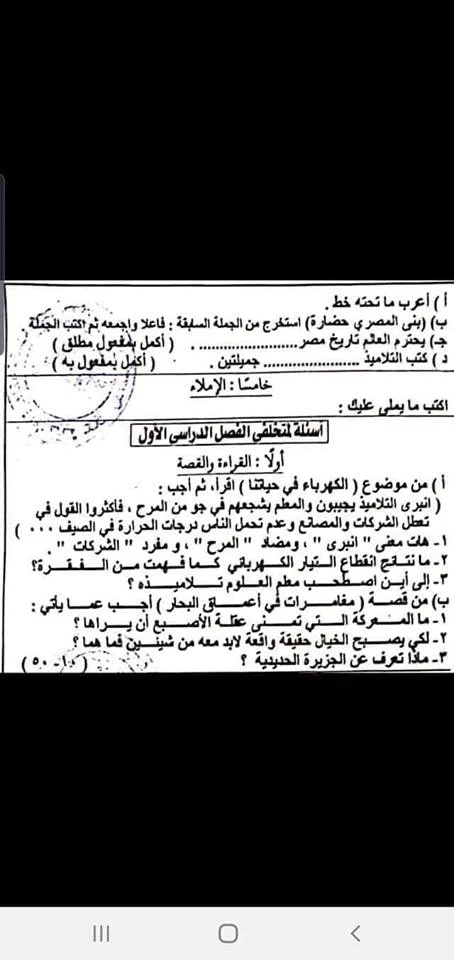 أ ) أعرب ما تحته خط .
ب) (بنى المصري حضارة) استخرج من الجملة السابقة : فاعلا واجمعه ثم اكتب الجملة .
جـ) يحترم العالم تاريخ مصر ........................ . ( أكمل بمفعول مطلق )
د ) كتب التلاميذ ........................ جميلتين . ( أكمل بمفعول به )
خامسًا : الإملاء
اكتب ما يملى عليك :
أسئلة لمتخلفي الفصل الدراسي الأول
أولًا : القراءة والقصة
أ ) من موضوع ( الكهرباء في حياتنا ) اقرأ، ثم أجب :
( انبرى التلاميذ يجيبون والمعلم يشجعهم في جو من المرح ، فأكثروا القول في
تعطل الشركات والمصانع وعدم تحمل الناس درجات الحرارة في الصيف ... )
١- هات معنى " انبرى " ، ومضاد " المرح " ، و مفرد " الشركات " .
٢- ما نتائج انقطاع التيار الكهربائي كما فهمت من الفقرة؟
٣- إلى أين اصطحب معلم العلوم تلاميذه ؟
ب) من قصة ( مغامرات في أعماق البحار ) أجب عما يأتي :
١- ما المعركة التي تمنى عقلة الأصبع أن يراها ؟
٢- لكي يصبح الخيال حقيقة واقعة لابد معه من شيئين فما هما ؟
٣- ماذا تعرف عن الجزيرة الحديدية ؟ (١٠-٥٠)